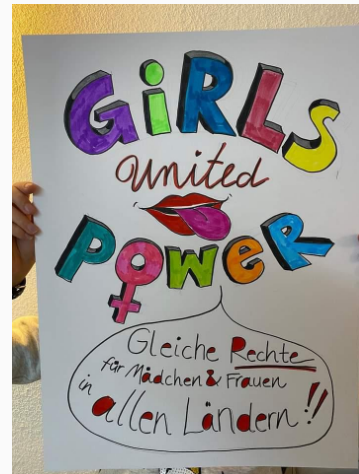 GiRLS
United
POWeR
Gleiche Rechte
für Mädchen & Frauen
in allen Ländern!!